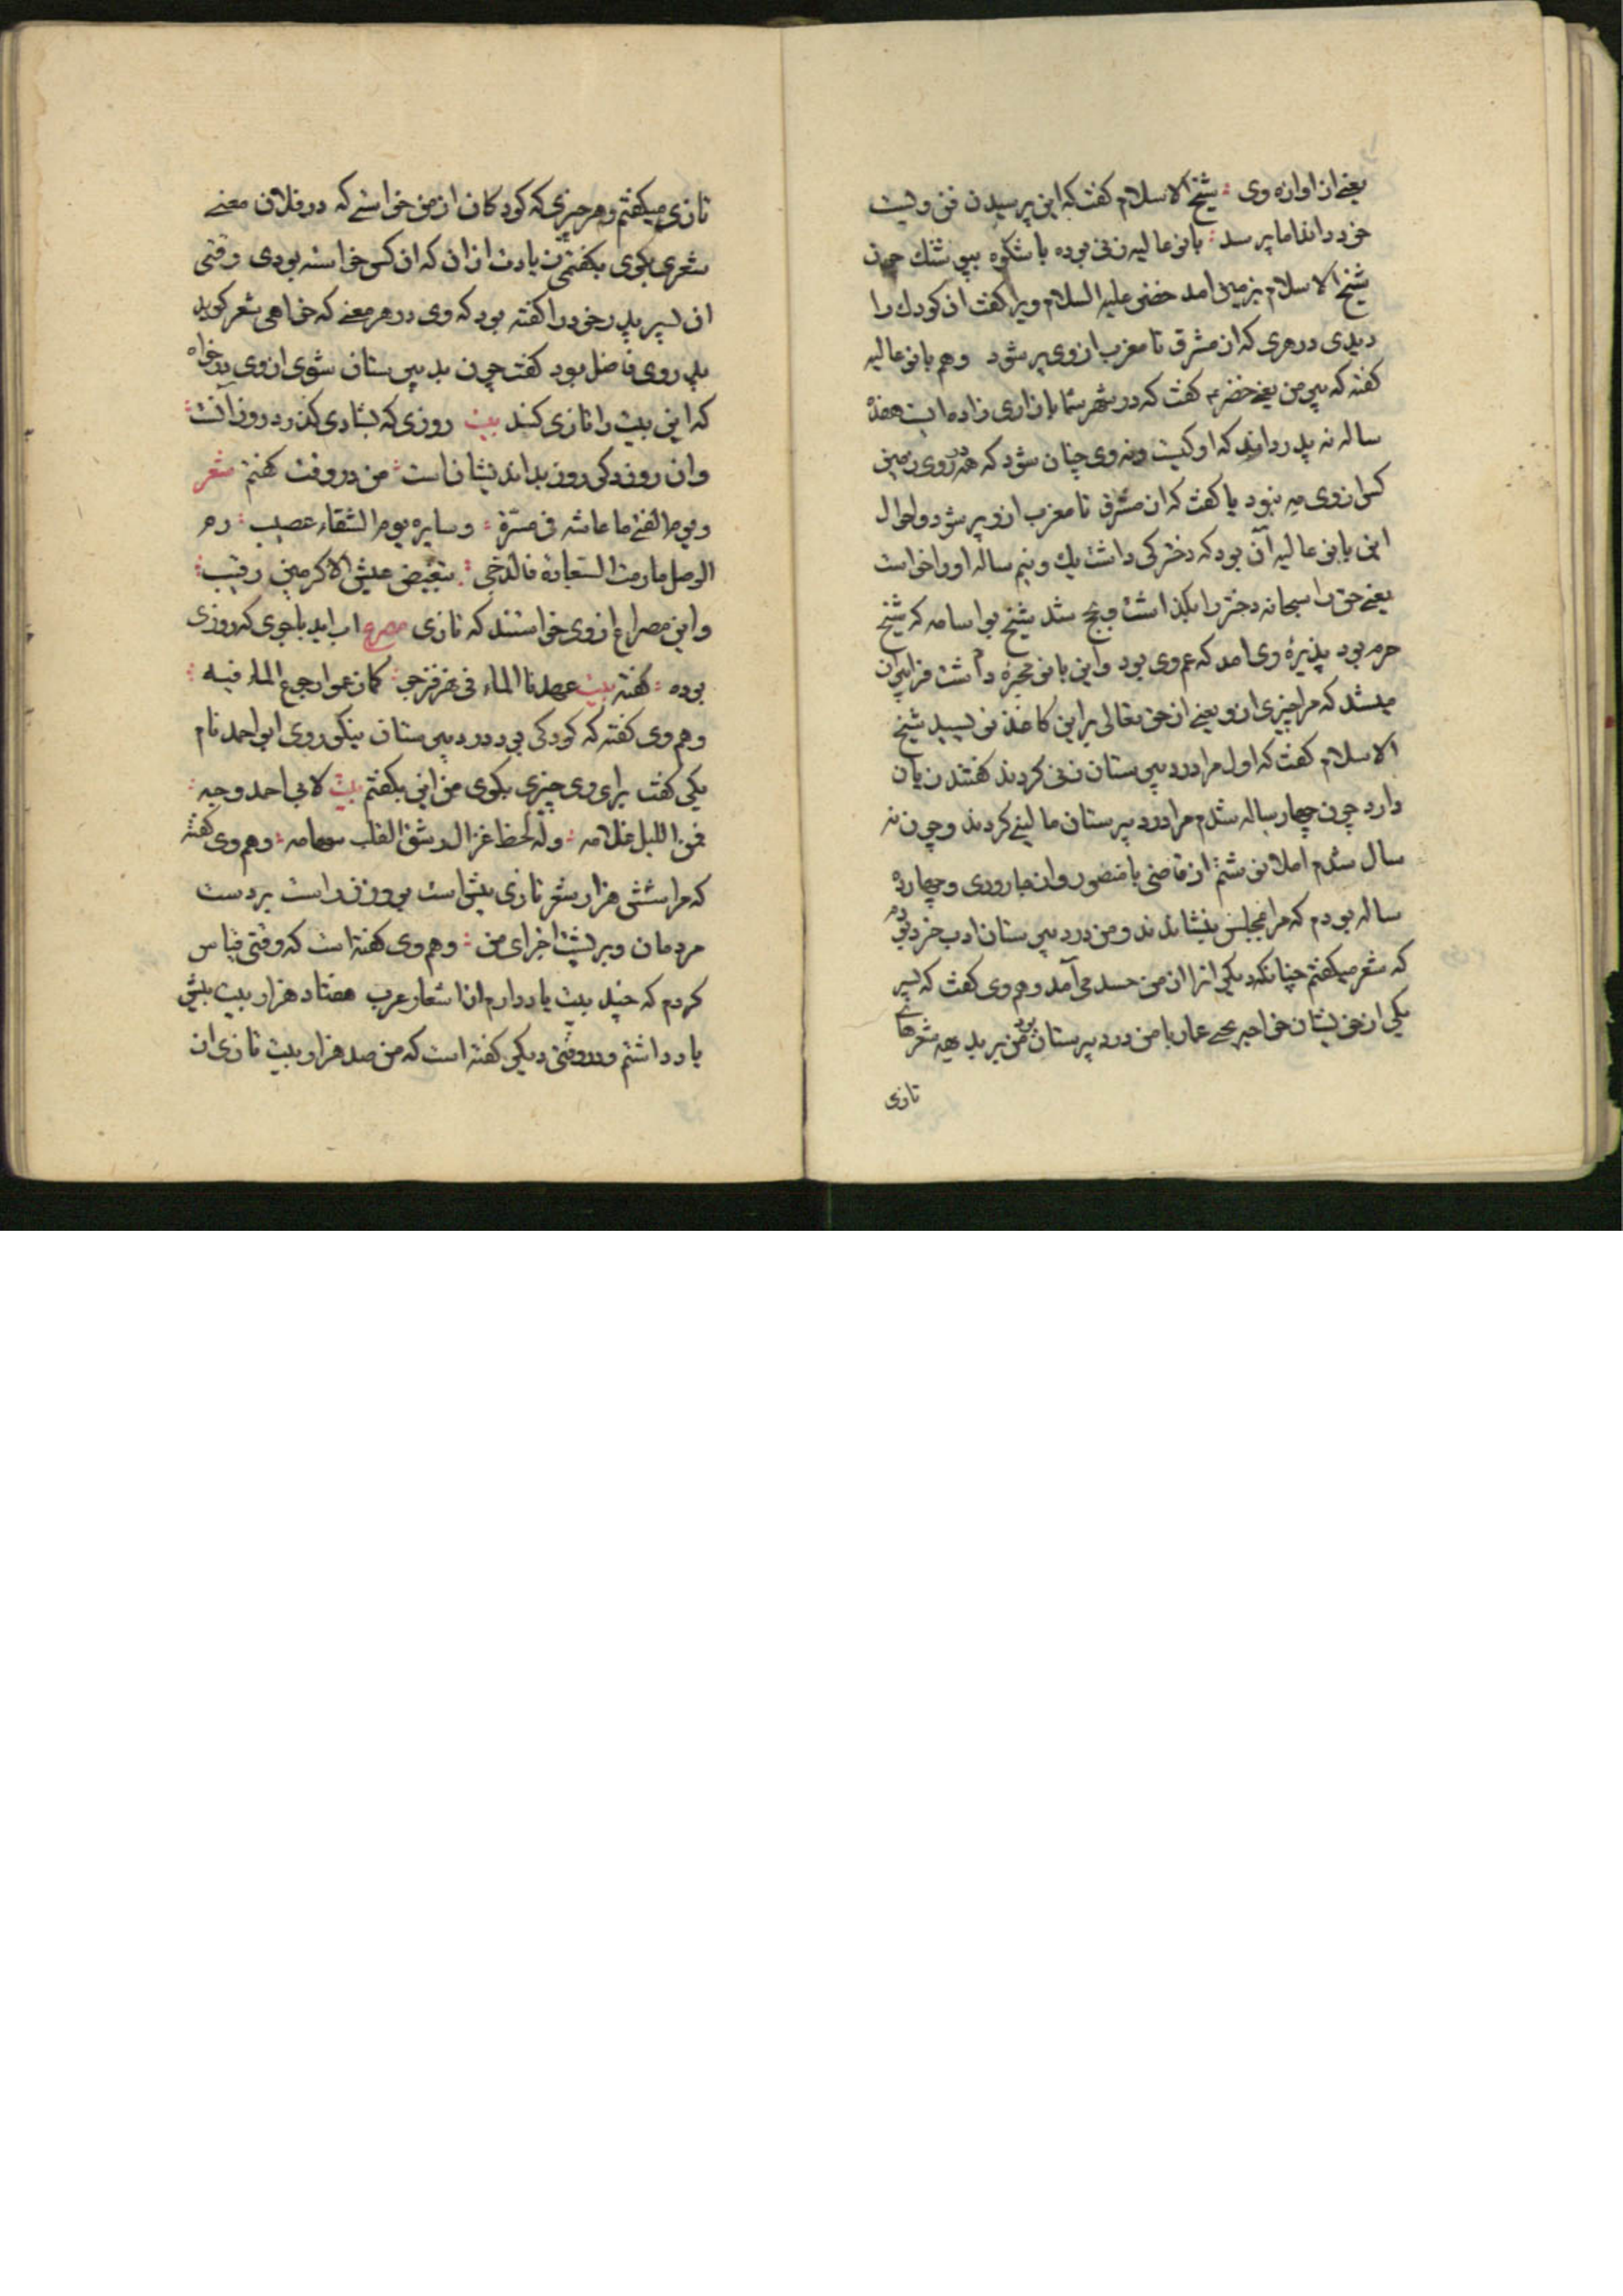 یعنی از آوازه وی شیخ الاسلام گفت که این پرسیدن فن ویست
خود داند اما پرسد بانو عالیه زنی بوده باشکوه ببوشنک چون
شیخ الاسلام بزمین امد خضر علیه السلام ویرا گفت ان کودک را
دیدی در هری که از مشرق تا مغرب از وی پر شود وهم بانو عالیه
گفته که پیر من یعنی خضر ع گفت که در شهر شما بازاری زاده است هفده
ساله نه پدر داند که او کیست ونه وی چنان شود که در همه روی زمین
کس از وی مه نبود یا گفت که از مشرق تا مغرب ازو پر شود واحوال
این بانو عالیه آن بود که دخترکی داشت یک ونیم ساله او را خواست
یعنی حق را سبحانه دختر را بگذاشت وبحج شد شیخ بو اسامه که شیخ
حرم بود پذیرهٔ وی امد که عم وی بود واین بانو محبره داشت فرا پیران
میشد که مرا چیزی ازو یعنی از حق تعالی بر این کاغذ نویسید شیخ
الاسلام گفت که اول مرا در دبیرستان زنی کردند گفتند زیان
دارد چون چهار ساله شدم مرا در دبیرستان مالینی کردند وچون نه
سال شدم املا نوشتم از قاضی با منصور واز جارودی وچهارده
ساله بودم که مرا بمجلس بنشاندند ومن در دبیرستان ادب خرد بودم
که شعر میگفتم چنانکه دیگرانرا از من حسد می آمد وهم وی گفت که پسر
یکی از خویشان خواجه یحیی عمار با من در دبیرستان بود من بر بدیهه شعرهای
تازی
تازی میگفتم وهر چیزی که کودکان از من خواستی که در فلان معنی
شعری بگوی بگفتمی زیادت از ان که ان کس خواسته بودی وقتی
ان پسر پدر خود را گفته بود که وی در هر معنی که خواهی شعر گوید
پدر وی فاضل بود گفت چون بدبیرستان شوی از وی درخواه
که این بیت را تازی کند بیت روزی که بشادی گذرد روز آنست
وان روز دگر روز بداندیشانست من در وقت گفتم شعر
ویوم الفتی ما عاشه فی مسرة وسایره یوم الشقاء عصیب دم
الوصل ما دمت السعادة فالدجی بتنغیص عیش الاکرمین رقیب
واین مصراع از وی خواستند که تازی مصرع اب اید باجوی که روزی
بوده گفته بیت عهدنا الماء فی نهر نرجی کما زعموا رجوع الماء فیه
وهم وی گفته که کودکی بود در دبیرستان نیکو روی ابو احمد نام
یکی گفت برای وی چیزی بگوی من این بگفتم بیت لابی احمد وجه
قمر اللیل غلامه وله لحظ غزال رشق القلب سهامه وهم وی گفته
که مرا شش هزار شعر تازی بیش است بر وزن راست بر دست
مردمان وبر پشت اجزای من وهم وی گفته است که وقتی قیاس
کردم که چند بیت یاد دارم از اشعار عرب هفتاد هزار بیت بیش
یاد داشتم ودر وقتی دیگر گفته است که من صد هزار بیت تازی از